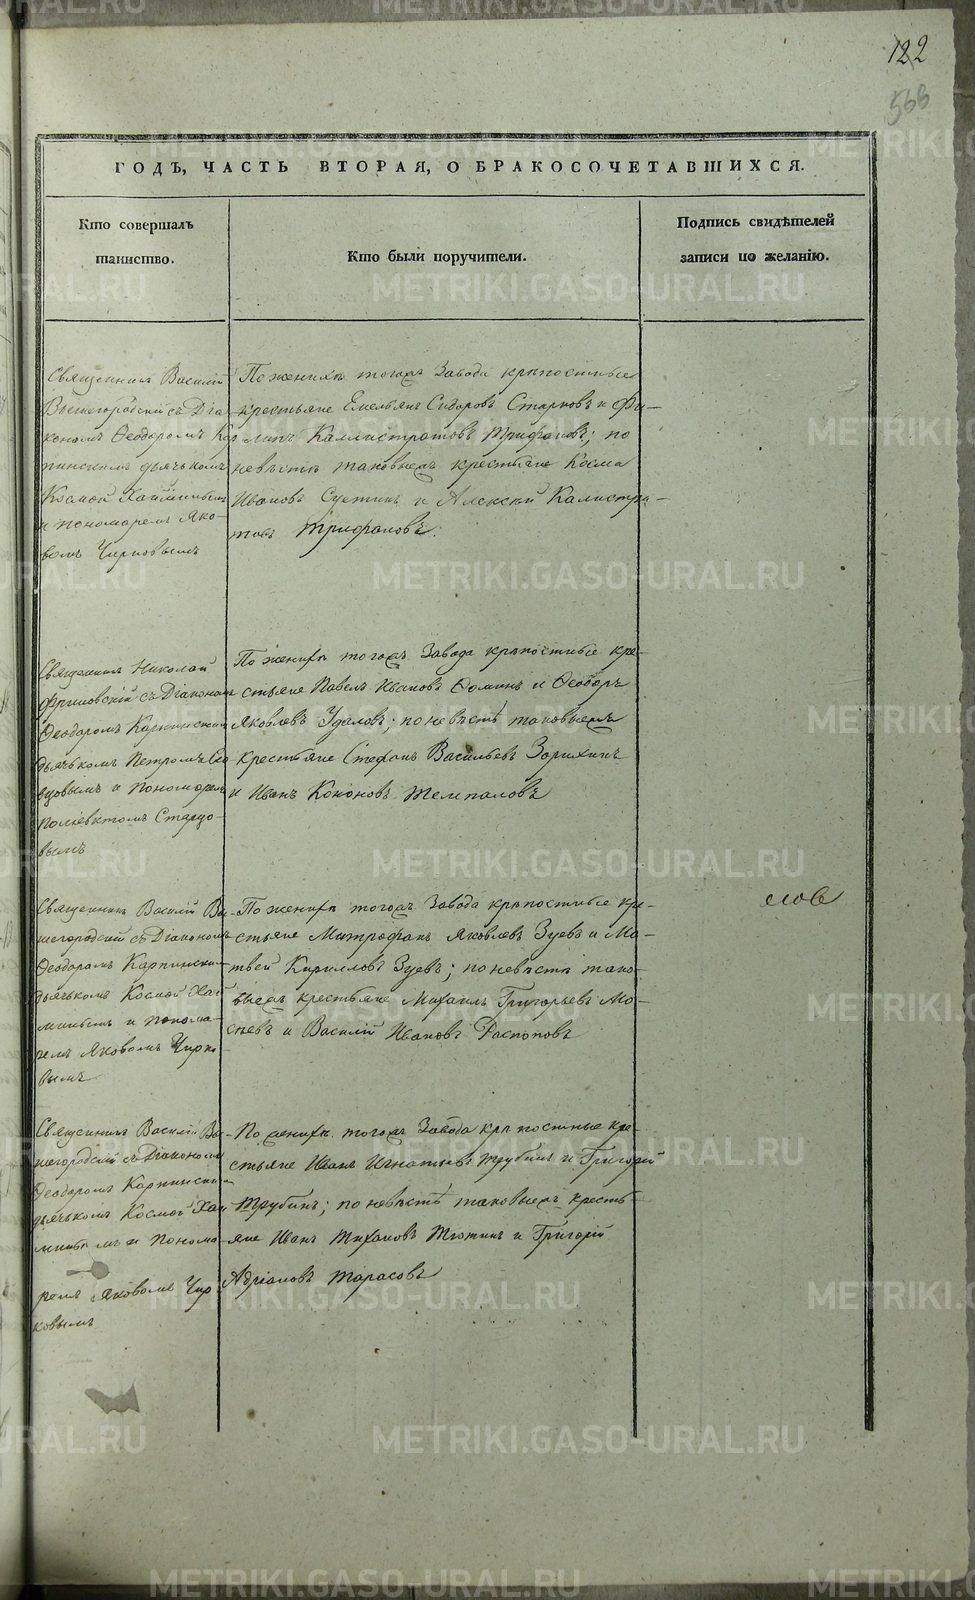 122
566
ГОДЪ, ЧАСТЬ ВТОРАЯ, О БРАКОСОЧЕТАВШИХСЯ.
Кто совершалъ
таинство.
Кто были поручители.
Подпись свидѣтелей
записи по желанію.
Священникъ Василій
Вышегородскій съ Діа-
кономъ Ѳеодоромъ Кар-
пинскимъ дьячькомъ
Космой
и пономаремъ Яко-
вомъ Чирковымъ
По женихѣ тогожъ Завода крѣпостные
крестьяне Емельянъ Сидоровъ Старковъ и Фи-
липъ Каллистратовъ Трифановъ; по
невѣстѣ таковыежъ крестьяне Косма
Ивановъ Суетинъ и Алексѣй Калистра-
товъ Трифановъ.
Священникъ Николай
съ Діакономъ
Ѳеодоромъ Карпинскимъ
дьячькомъ Петромъ
и Пономаремъ
Поліевктомъ Старцо-
вымъ
По женихѣ тогожъ Завода крѣпостные кре-
стьяне Павелъ Ивановъ Ѳоминъ и Ѳеодоръ
Яковлевъ Удаловъ; по невѣстѣ таковыежъ
крестьяне Стефанъ Васильевъ Зорихинъ
и Иванъ Кононовъ Темпаловъ
Священникъ Василій Вы-
шегородскій съ Діакономъ
Ѳеодоромъ Карпинским
дьячькомъ Космой
и понома-
ремъ Яковомъ Чирко-
вымъ
По женихѣ тогожъ Завода крѣпостные кре-
стьяне Митрофанъ Яковлевъ Зуевъ и Ма-
твей Кирилловъ Зуевъ; по невѣстѣ тако-
выежъ крестьяне Михаилъ Григорьевъ Мо-
сѣевъ и Василій Ивановъ Распоповъ
Священникъ Василій Вы-
шегородскій съ Діакономъ
Ѳеодоромъ Карпинским
дьячькомъ Космой
и Понома-
ремъ Яковомъ Чир-
ковымъ
По женихѣ тогожъ Завода крѣпостные кре-
стьяне Иванъ Игнатьевъ Трубинъ и Григорій
Трубинъ; по невѣстѣ таковыежъ кресть-
яне Иванъ Тютинъ и Григорій
Адріановъ Тарасовъ
METRIKI.GASO-URAL.RU